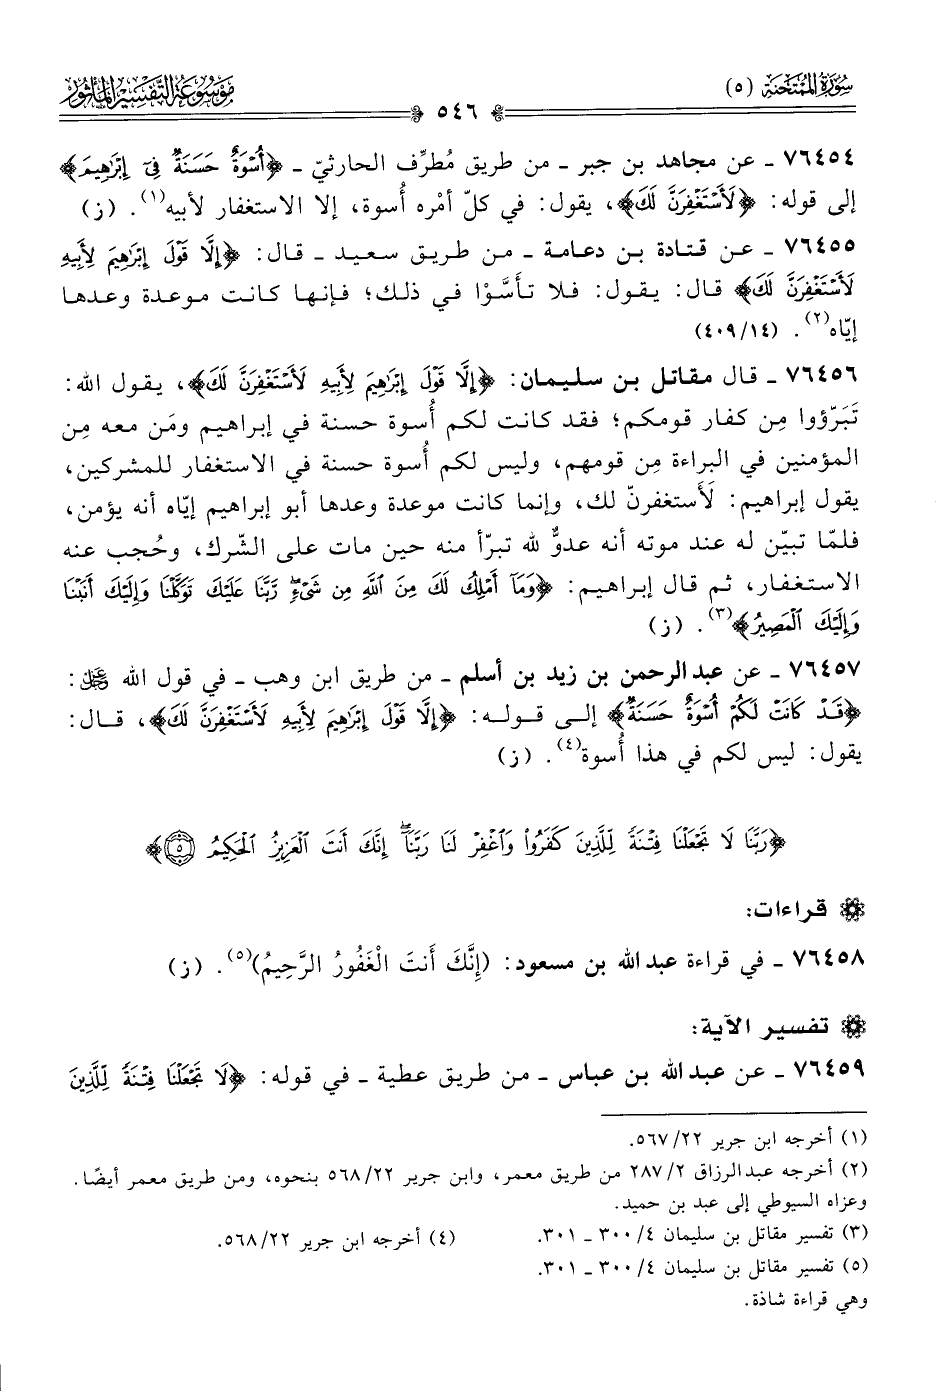 سُورَةُ المُمْتَحنَة (٥)
٥٤٦
مَوْسُوعَة التَّفْسِير المَأْثُور
٧٦٤٥٤ ـ عن مجاهد بن جبر ـ من طريق مُطرِّف الحارثيّ ـ ﴿أُسْوَةٌ حَسَنَةٌ فِيٓ إِبْرَٰهِيمَ﴾
إلى قوله: ﴿لَأَسْتَغْفِرَنَّ لَكَ﴾، يقول: في كلّ أمْره أُسوة، إلا الاستغفار لأبيه(١). (ز)
٧٦٤٥٥ ـ عن قتادة بن دعامة ـ من طريق سعيد ـ قال: ﴿إِلَّا قَوْلَ إِبْرَٰهِيمَ لِأَبِيهِ
لَأَسْتَغْفِرَنَّ لَكَ﴾ قال: يقول: فلا تأسَّوْا في ذلك؛ فإنها كانت موعدة وعدها
إيّاه(٢). (٤٠٩/١٤)
٧٦٤٥٦ ـ قال مقاتل بن سليمان: ﴿إِلَّا قَوْلَ إِبْرَٰهِيمَ لِأَبِيهِ لَأَسْتَغْفِرَنَّ لَكَ﴾، يقول الله:
تَبَرّؤوا مِن كفار قومكم؛ فقد كانت لكم أُسوة حسنة في إبراهيم ومَن معه مِن
المؤمنين في البراءة مِن قومهم، وليس لكم أُسوة حسنة في الاستغفار للمشركين،
يقول إبراهيم: لَأستغفرنّ لك، وإنما كانت موعدة وعدها أبو إبراهيم إيّاه أنه يؤمن،
فلمّا تبيّن له عند موته أنه عدوٌّ لله تبرّأ منه حين مات على الشّرك، وحُجب عنه
الاستغفار، ثم قال إبراهيم: ﴿وَمَآ أَمْلِكُ لَكَ مِنَ ٱللَّهِ مِن شَىْءٍۖ رَّبَّنَا عَلَيْكَ تَوَكَّلْنَا وَإِلَيْكَ أَنَبْنَا
وَإِلَيْكَ ٱلْمَصِيرُ﴾(٣). (ز)
٧٦٤٥٧ ـ عن عبد الرحمن بن زيد بن أسلم ـ من طريق ابن وهب ـ في قول الله ﷿:
﴿قَدْ كَانَتْ لَكُمْ أُسْوَةٌ حَسَنَةٌ﴾ إلى قوله: ﴿إِلَّا قَوْلَ إِبْرَٰهِيمَ لِأَبِيهِ لَأَسْتَغْفِرَنَّ لَكَ﴾، قال:
يقول: ليس لكم في هذا أُسوة(٤). (ز)
﴿رَبَّنَا لَا تَجْعَلْنَا فِتْنَةً لِّلَّذِينَ كَفَرُوا۟ وَٱغْفِرْ لَنَا رَبَّنَآۖ إِنَّكَ أَنتَ ٱلْعَزِيزُ ٱلْحَكِيمُ ٥﴾
قراءات:
٧٦٤٥٨ ـ في قراءة عبد الله بن مسعود: (إِنَّكَ أَنتَ الْغَفُورُ الرَّحِيمُ)(٥). (ز)
تفسير الآية:
٧٦٤٥٩ ـ عن عبد الله بن عباس ـ من طريق عطية ـ في قوله: ﴿لَا تَجْعَلْنَا فِتْنَةً لِّلَّذِينَ
(١) أخرجه ابن جرير ٥٦٧/٢٢.
(٢) أخرجه عبد الرزاق ٢٨٧/٢ من طريق معمر، وابن جرير ٥٦٨/٢٢ بنحوه، ومن طريق معمر أيضًا.
وعزاه السيوطي إلى عبد بن حميد.
(٣) تفسير مقاتل بن سليمان ٣٠٠/٤ ـ ٣٠١. (٤) أخرجه ابن جرير ٥٦٨/٢٢.
(٥) تفسير مقاتل بن سليمان ٣٠٠/٤ ـ ٣٠١.
وهي قراءة شاذة.